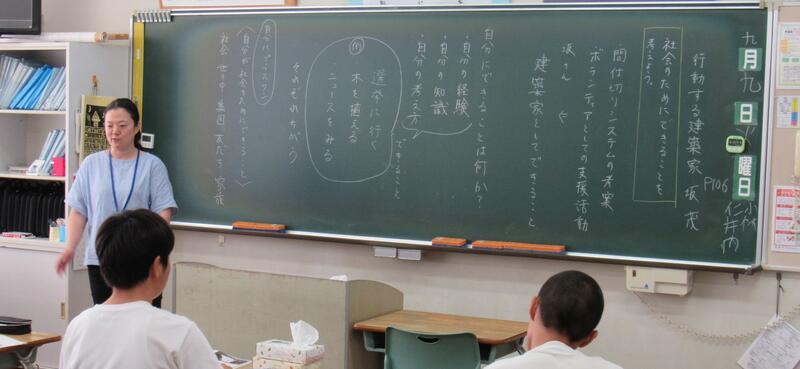 九月九日
曜日
小林
仁井内
行動する建築家 坂茂
P106
社会のためにできることを
考えよう。
間仕切りシステムの考案
ボランティアとしての支援活動
坂さん や
建築家としてできること
自分にできることは何か?
・自分の経験
・自分の知識
・自分の考え方
できること
例
選挙に行く
木を植える
ニュースをみる
それぞれちがう
自分にとってスタンス
〈自分が社会のためにできること〉
社会 世の中 集団 友だち 家族